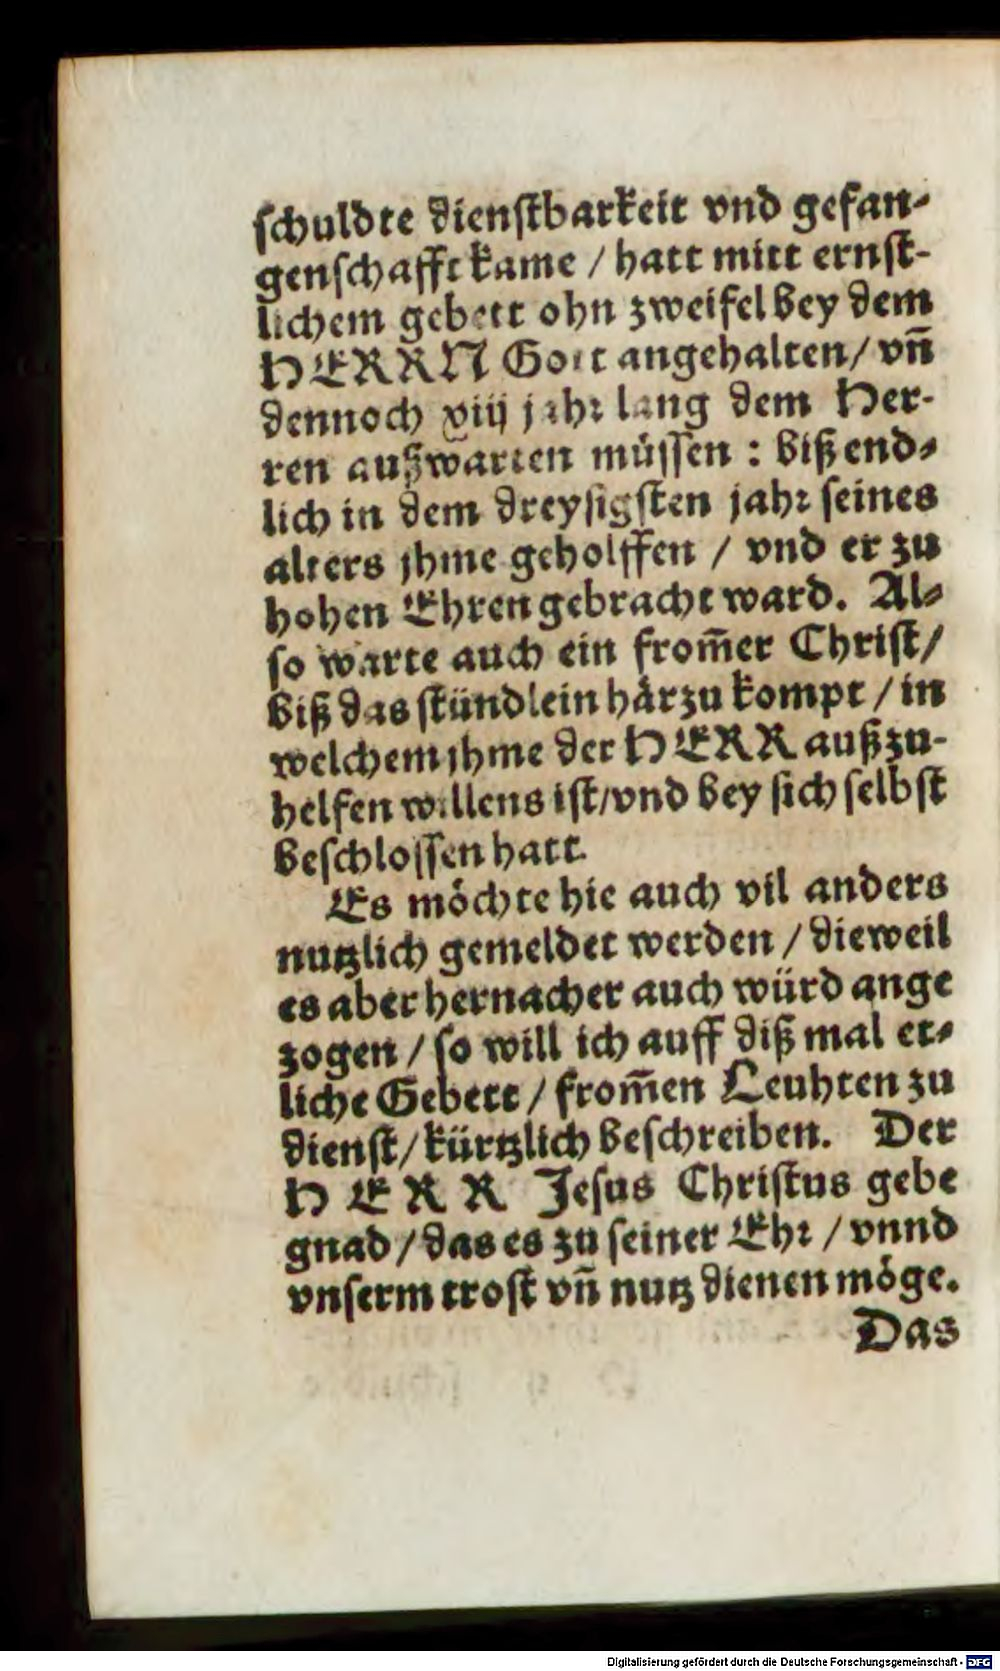 schuldte dienstbarkeit vnd gefan-
genschafft kame / hatt mitt ernst-
lichem gebett ohn zweifel bey dem
HERRN Gott angehalten / vñ
dennoch xiij jahr lang dem Her-
ren außwarten müssen : biß end-
lich in dem dreysigsten jahr seines
alters jhme geholffen / vnd er zu
hohen Ehren gebracht ward. Al-
so warte auch ein from̃er Christ /
biß das stündlein härzu kompt / in
welchem jhme der HERR außzu-
helfen willens ist / vnd bey sich selbst
beschlossen hatt.
Es möchte hie auch vil anders
nutzlich gemeldet werden / dieweil
es aber hernacher auch würd ange
zogen / so will ich auff diß mal et-
liche Gebett / from̃en Leuhten zu
dienst / kürtzlich beschreiben. Der
HERR Jesus Christus gebe
gnad / das es zu seiner Ehr / vnnd
vnserm trost vñ nutz dienen möge.
Das
Digitalisierung gefördert durch die Deutsche Forschungsgemeinschaft - DFG